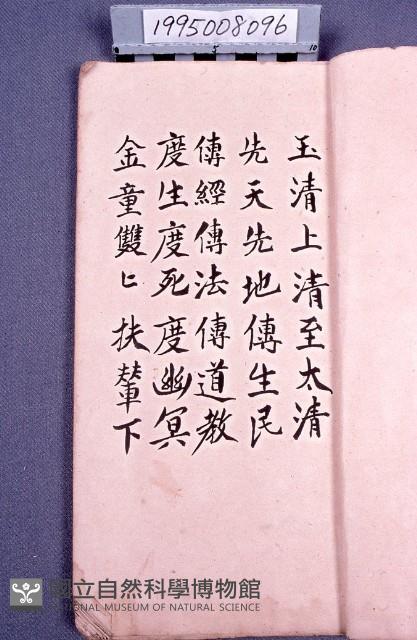 1995008096
5
10
玉清上清至太清
先天先地傳生民
傳經傳法傳道教
度生度死度幽冥
金童雙〻扶輦下
國立自然科學博物館
NATIONAL MUSEUM OF NATURAL SCIENCE